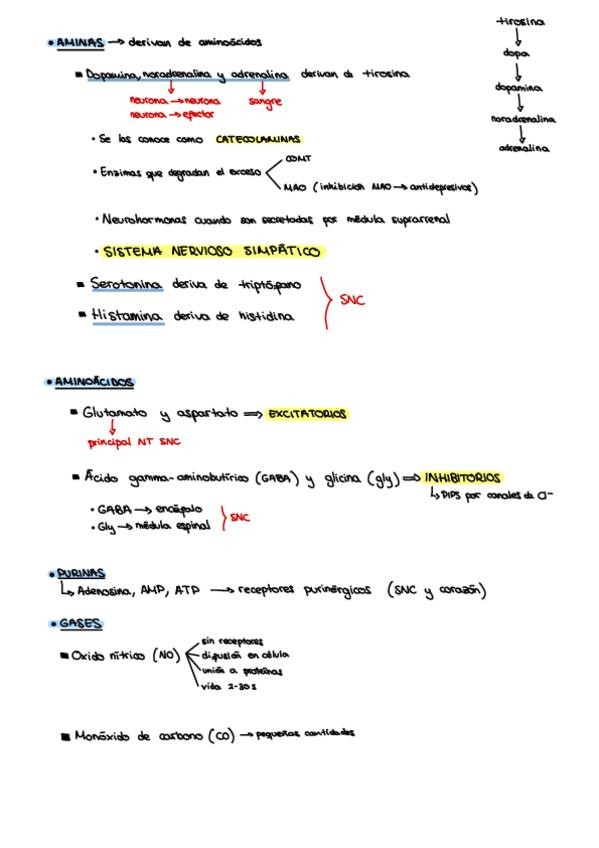 • AMINAS → derivan de aminoácidos
tirosina
↓
dopa
↓
dopamina
↓
noradrenalina
↓
adrenalina
▪ Dopamina, noradrenalina y adrenalina derivan de tirosina
neurona → neurona
neurona → efector
sangre
• Se las conoce como CATECOLAMINAS
• Enzimas que degradan el exceso
COMT
MAO (inhibición MAO → antidepresivos)
• Neurohormonas cuando son secretadas por médula suprarrenal
• SISTEMA NERVIOSO SIMPÁTICO
▪ Serotonina deriva de triptópano
▪ Histamina deriva de histidina
SNC
• AMINOÁCIDOS
▪ Glutamato y aspartato ⇒ EXCITATORIOS
principal NT SNC
▪ Ácido gamma-aminobutírico (GABA) y glicina (gly) ⇒ INHIBITORIOS
↳ PIPS por canales de Cl-
• GABA → encéfalo
• Gly → médula espinal
SNC
• PURINAS
↳ Adenosina, AMP, ATP → receptores purinérgicos (SNC y corazón)
• GASES
▪ Oxido nítrico (NO)
sin receptores
difusión en célula
unión a proteínas
vida 2-30 s
▪ Monóxido de carbono (CO) → pequeñas cantidades